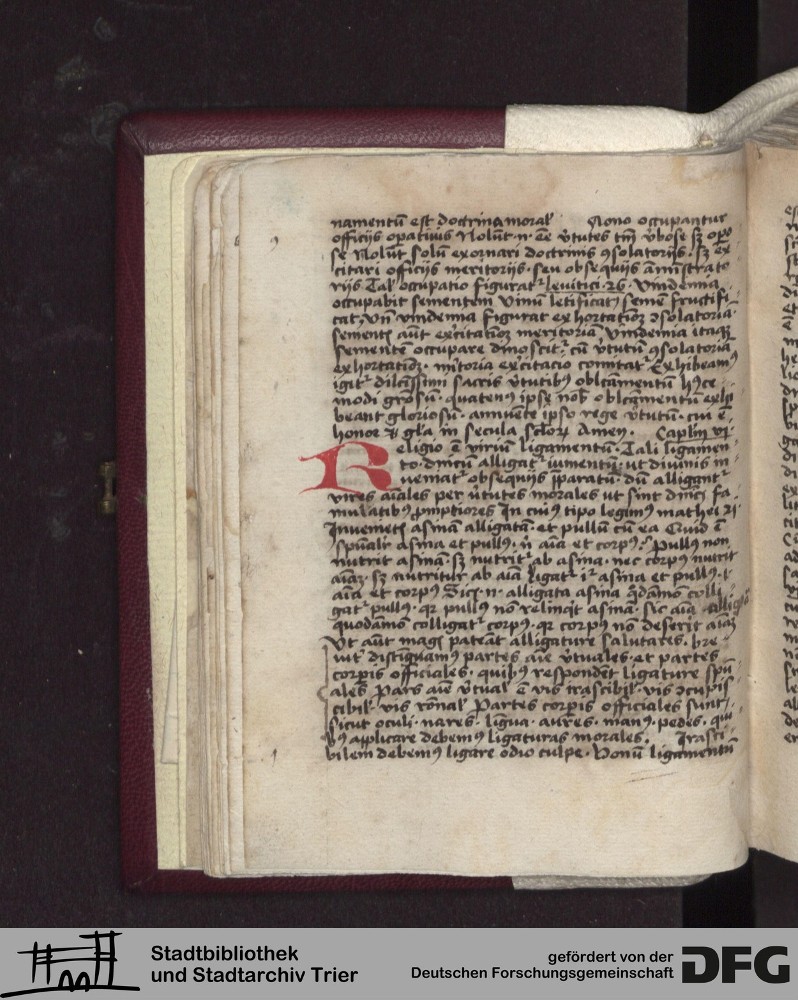 namentū est doctrina moral' Nono ocupantur
officijs opatiuis Nolūt·n·ēe v̄tutes tm̄ v̄bose sꝫ opo
se Nolūt solū exornari doctrinis ꝯsolatorijs· sꝫ ex
citari officijs meritorijs· seu obsequijs āmīstrato
rijs Tal' occupatio figurat᷑ leuitici·26· Vindemia
occupabit sementem Vinū letificat semē fructifi
cat, Vn̄ vindemia figurat exhortatiōꝫ ↄsolatoriā·
sementꝭ aūt excitatiōꝫ meritoriā, Vindemia itaqꝫ
semente occupare dinoscit᷑· cū v̄tutū ꝯsolatoria
exhortatiōꝫ· m̄itoria excitacio comitat᷑ Exhibeamꝰ
igit᷑ dilc̄issimi sacris v̄tutibꝰ oblc̄amentū hꝰce
modi grosū· quatenꝰ ipse nob̄ oblc̄amentū exhi
beant gloriosū· annuete ipso rege v̄tutū· cui ē
honor & gl'a in secula sc̄lorꝫ Amen· Capl'm vj·
Religio ē viriū ligamentū· Tali ligamen
to· dn̄icū alligat᷑ iumentū· ut diuinis in
ueniat᷑ obsequijs p̄paratū· dū alligant᷑
vires aīales per v̄tutes morales ut sint dn̄icī fa
mulatibꝰ ꝓmptiores In cuiꝰ tipo legimꝰ mathei 21
Inuenietꝭ asinā alligatā· et pullū cū ea Quid ē
sp̄ualr̄ asina et pullꝰ· n̄ aīa et corpꝰ? Pullꝰ non
nutrit asinā· sꝫ nutrit᷑ ab asina· nec corpꝰ nutrit
aīaꝫ· sꝫ nutritur ab aīa ligat᷑ ig᷑ asina et pullꝰ·
aīa et corpꝰ Sicꝫ·n· alligata asina q̄dāmō colli
gat᷑ pullꝰ· qr pullꝰ nō relinq̄t asinā· sic aīa alligata
quodāmō colligat᷑ corpꝰ· qr corpꝰ nō deserit aīaꝫ
Vt aūt magꝭ pateāt alligature salutares· bre
uit᷑ distīguamꝰ partes aīe v̄tuales· et partes
corpīs officiales· quibꝰ respondēt ligature sp̄u
ales Pars aūe v̄tual' ē vis irascibil'· vis ↄcupis
cibil'· vis rōnal' Partes corpīs officiales sunt·
sicut oculi· nares· ligua· aures· manꝰ· pedes· qui
bꝰ applicare debemꝰ ligaturas morales· Irasci
bilem debemꝰ ligare odio culpe· Bonū ligamentū
Stadtbibliothek
und Stadtarchiv Trier
gefördert von der
Deutschen Forschungsgemeinschaft
DFG